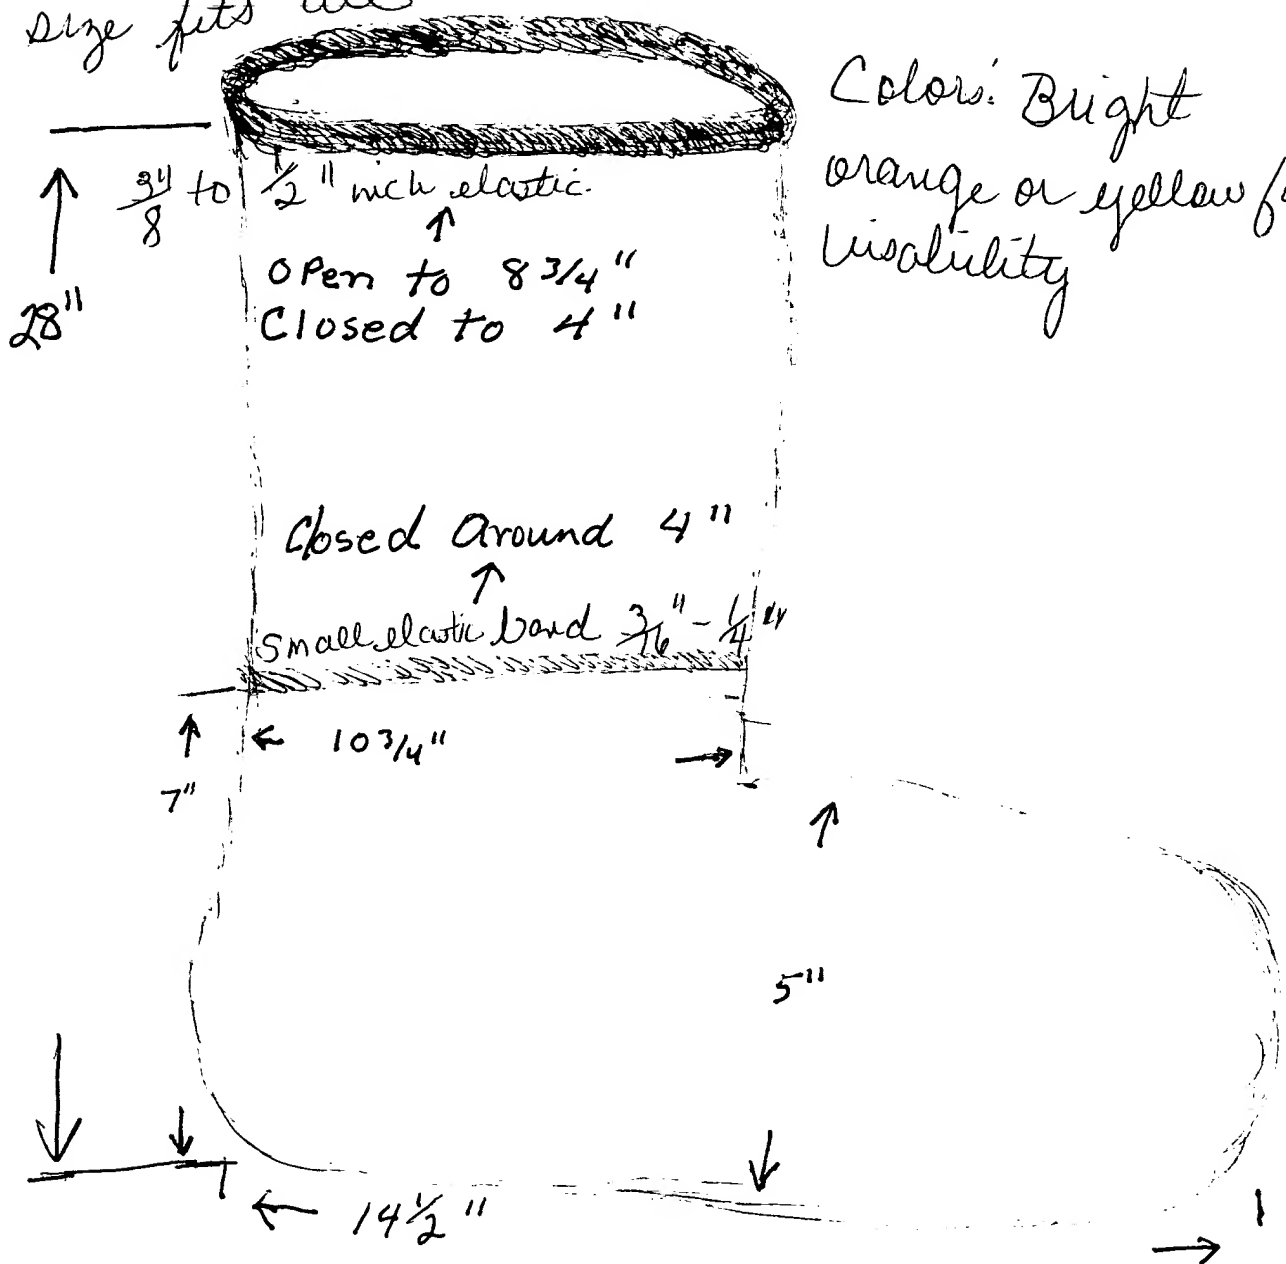 size fits all
Colors: Bright
orange or yellow
visability
3" to 1/2" inch elastic.
8
Open to 8 3/4"
Closed to 4"
28"
Closed Around 4"
Small elastic band 3/16" - 1/4"
10 3/4"
7"
5"
14 1/2"